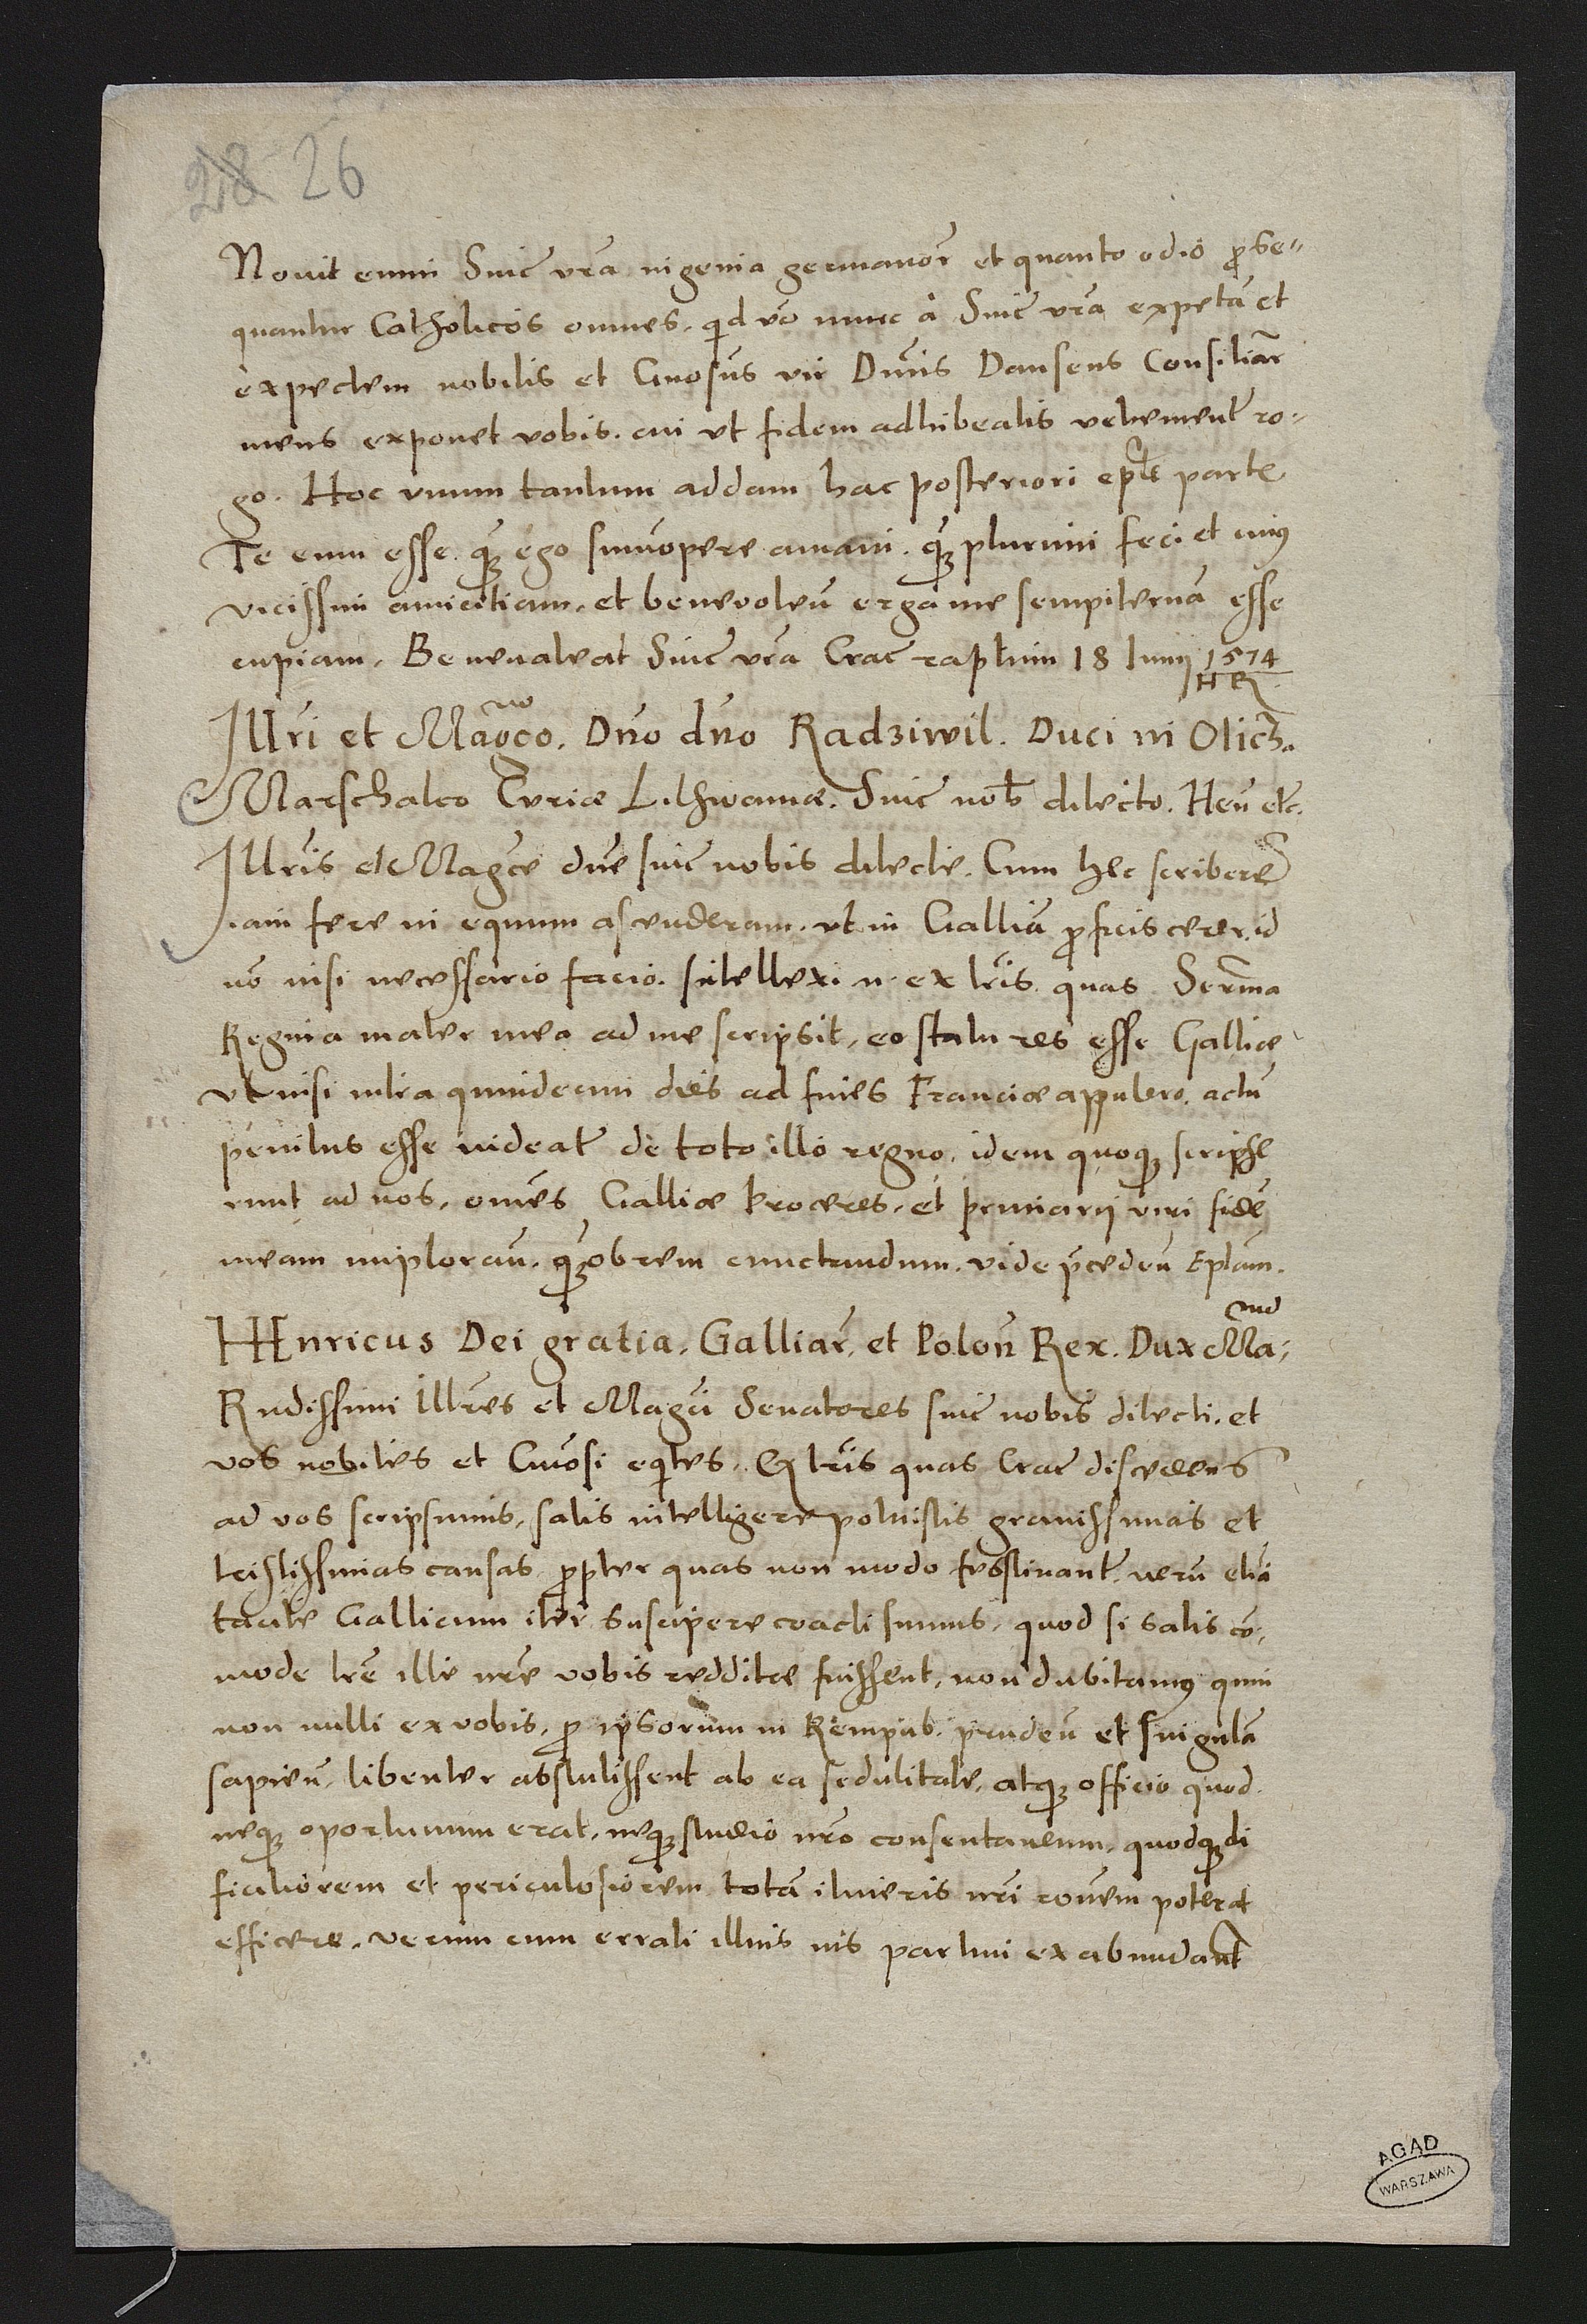 28 26
Nouit enim Sinc vra ingenia germanor et quanto odio prose-
quantur Catholicos omnes. quid vo nunc à Sinc vra expetã et
expectem nobilis et Gnosus vir Dnus Dansens Consiliar
meus exponet vobis. cui vt fidem adhibeatis vehement ro-
go. Hoc vnum tantum addam hac posteriori eplae parte
Te eum esse. quem ego summopere amaui. quem plurimi feci. et cuius
vicissim amicitiam, et beneuolen erga me sempiternã esse
cupiam. Bene ualeat Sinc vra Crac raptim 18 Junij 1574
HR
Illri et Magco. Dno dno Radziwil. Duci in Olich.
Marschalco Curiæ Lithwaniæ. Sinc nob dilecto. Hen etc.
Illris et Magce dne sinc nobis dilecte. Cum hec scriberẽ
iam fere in equum ascenderam. vt in Galliã proficiscerer. id
nõ nisi necessario facio. intellexi n. ex lris. quas Serma
Regina mater mea ad me scripsit, eo statu res esse Galliæ
vt nisi intra quindecim dies ad fines Franciæ appulero. actũ
penitus esse uideat de toto illo regno. idem quoque scripse
runt ad nos. omes Galliæ proceres. et primarij viri fidẽ
meam implorãn. quamobrem cunctandum. vide pceden Eplam.
HEnricus Dei gratia. Galliar. et Polon Rex. Dux Ma:
Rndissimi Illres et Magci Senatores sinc nobis dilecti. et
vos nobiles et Gnosi equites. Ex lris quas Crac discedens
ad vos scripsimus, satis intelligere potuistis grauissimas et
tristissimas causas propter quas non modo festinant. uerũ etiã
tacite Gallicum iter suscipere coacti sumus, quod si satis cõ-
mode lre ille nre vobis redditæ fuissent, non dubitamus quin
non nulli ex vobis, pro ipsorum in Rempub. pruden et singulã
sapien, libenter abstulissent ab ea sedulitate, atque officio quod
neque oportunum erat, neque studio nro consentaneum, quodque di
ficiliorem et periculosiorem totã itineris nri roñem poterat
efficere. verum cum errati illius uis partim ex abundant
AGAD
WARSZAWA